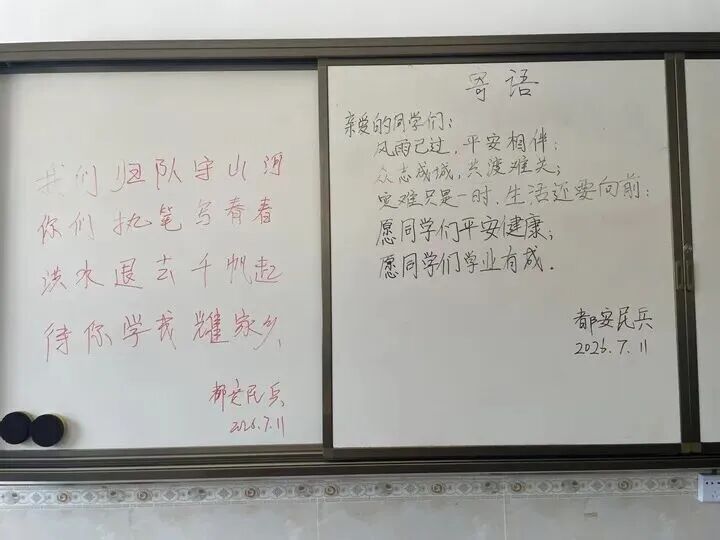 我们归队守山河
你们执笔写青春
洪水退去千帆起
待你学成耀家乡
都安民兵
2026.7.11
寄语
亲爱的同学们:
风雨已过,平安相伴;
众志成城,共渡难关;
灾难只是一时,生活还要向前;
愿同学们平安健康;
愿同学们学业有成.
都安民兵
2026.7.11